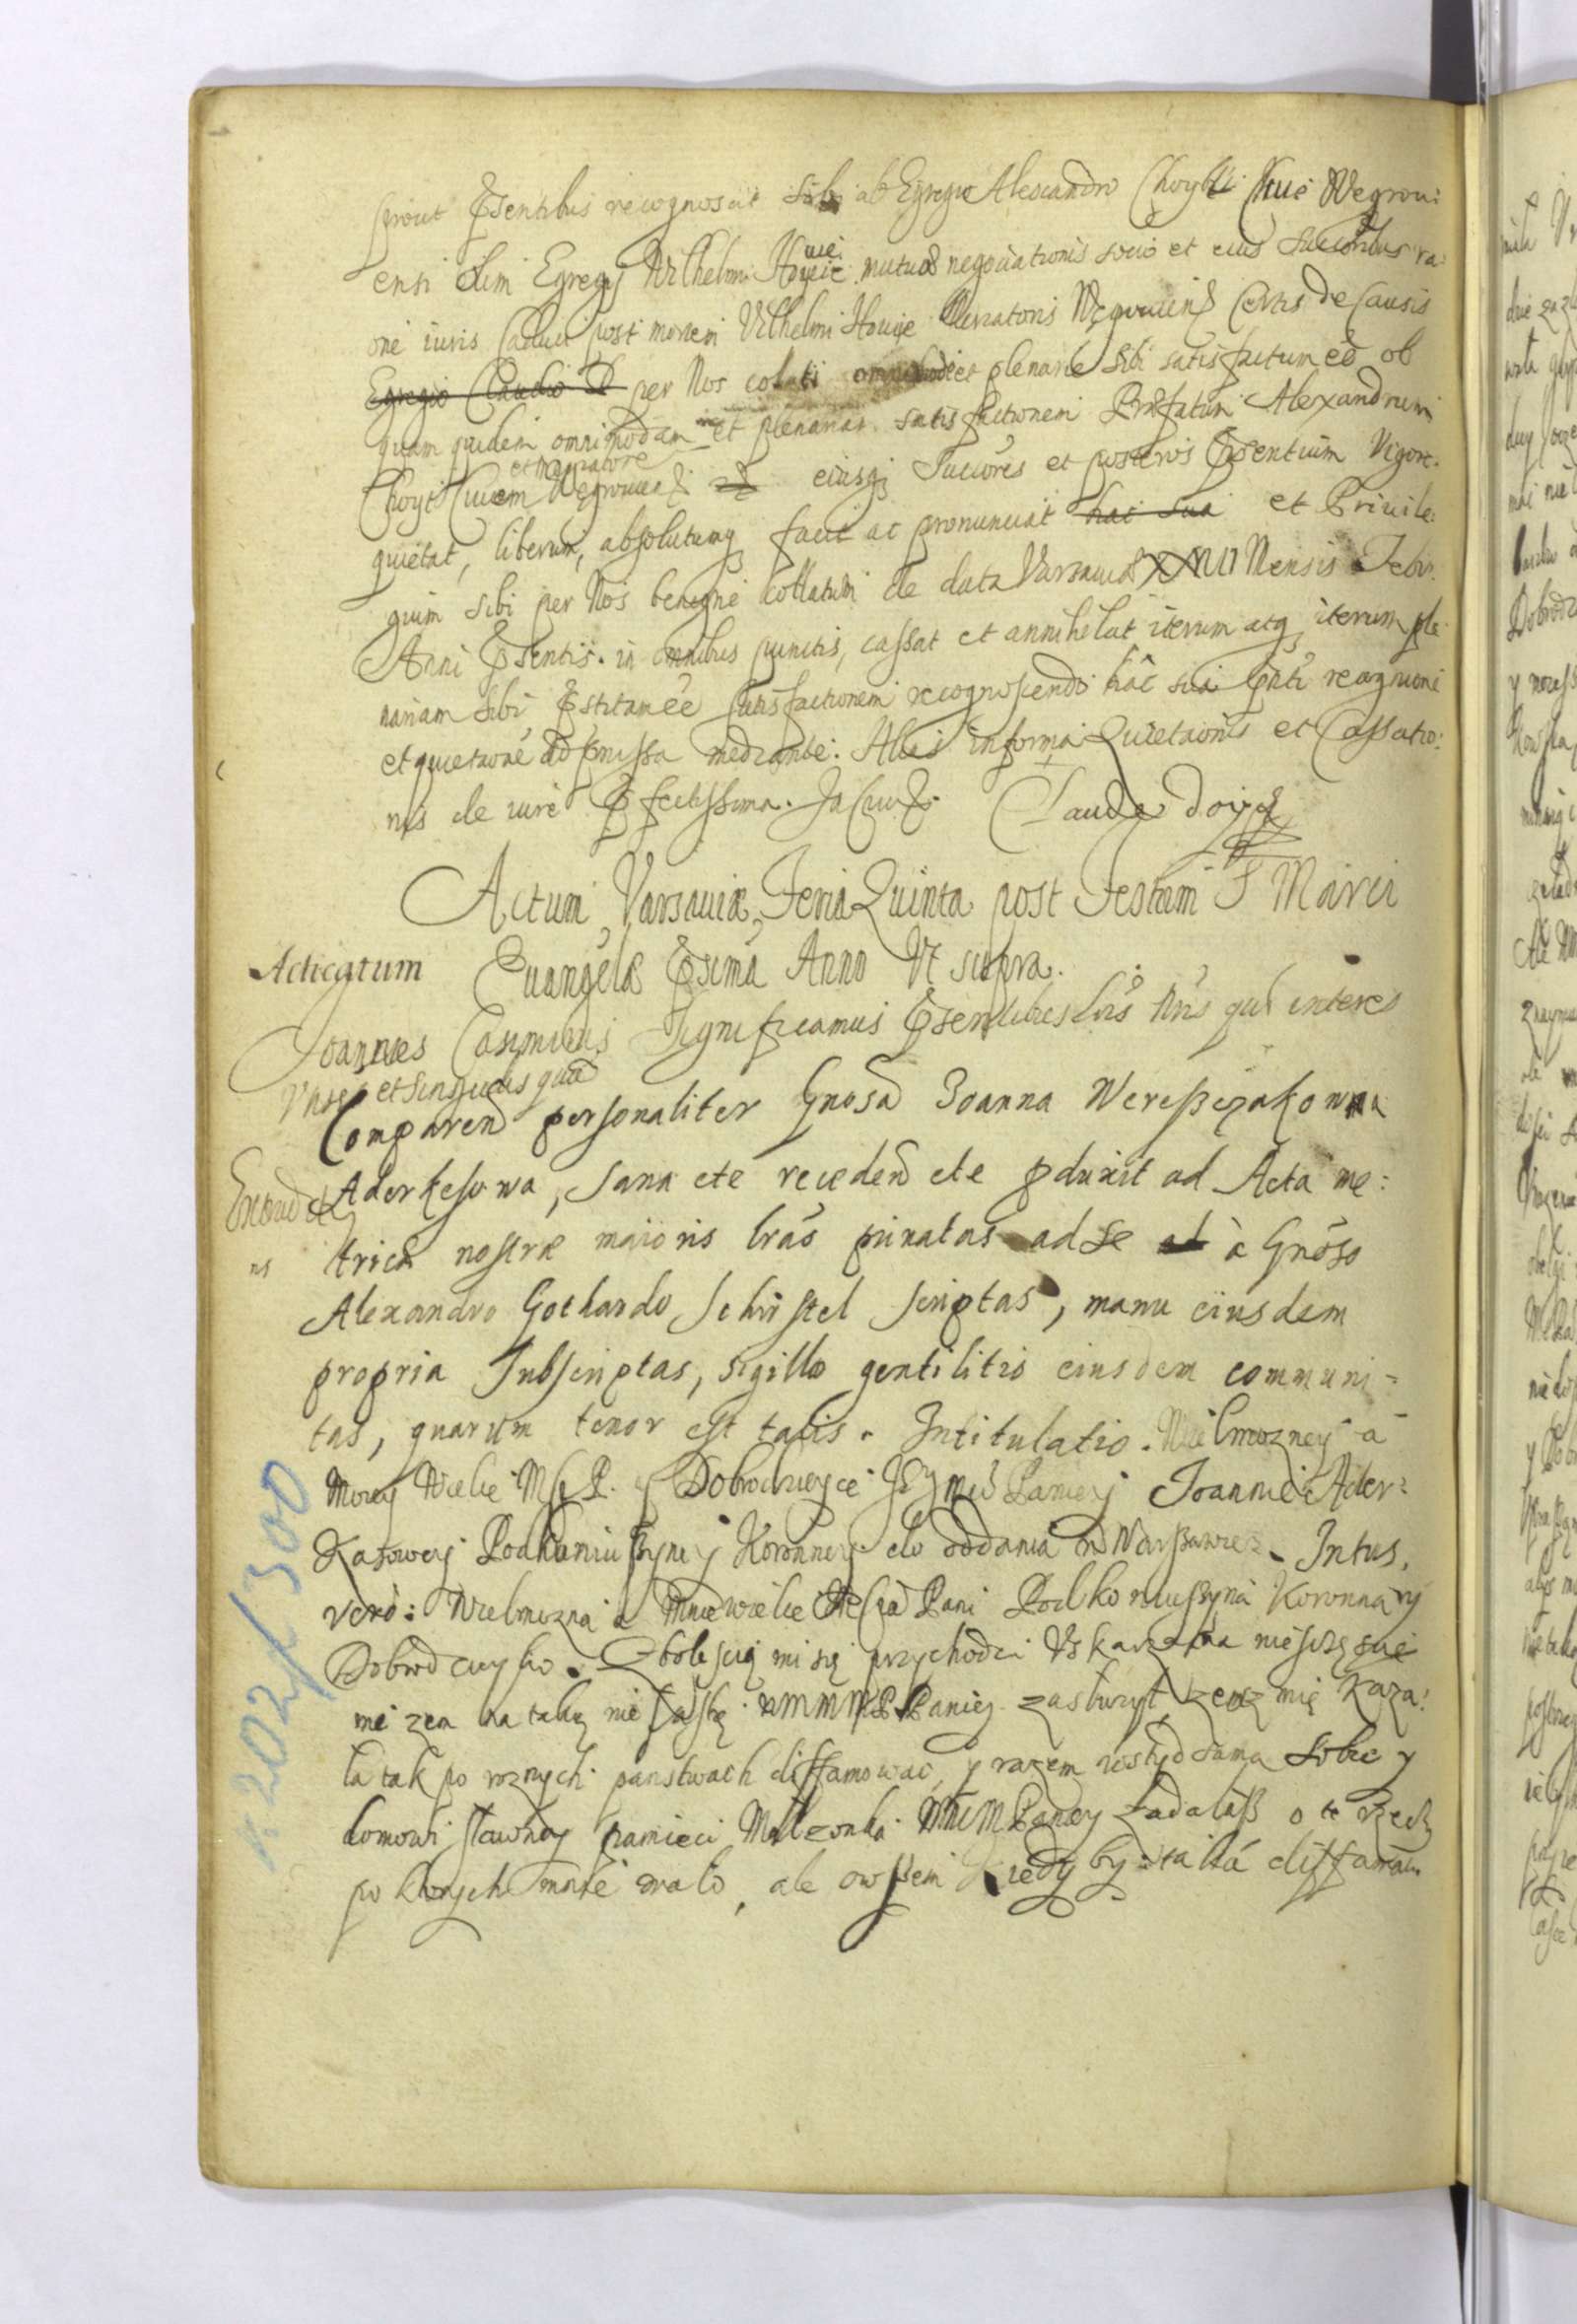 prout Psentibus recognoscit sibi ab Egregio Alexandro Choyt Ciue Wegroui:
ensi olim Egregij Wilhelmi Houie mutuae negociationis socio et eius Succoribus ra:
one iuris Caduci post mortem Vilhelmi Houie Mercatoris Wegrouien Certis de Causis
Egregio Claudio D per Nos colati omnimode et plenarie sibi satisfactum eē ob
quam quidem omnimodam et plenariam satisfactionem Præfatum Alexandrum
et mercatore
Choyt Ciuem Wegrouien eiusq Succōres et posteros Psentium Vigore.
quietat, liberum, absolutumq facit ac pronunciat hac sua et Priuile:
gium sibi per Nos benigne collatum de data Varsauiæ XXVII Mensis Febr.
Anni Psentis. in omnibus punctis, cassat et annihilat iterum atq iterum ple
nariam sibi Pstitam eē satisfactionem recognoscendo hâc sua Pnti recognitione
et quietaōne ad Pmissa mediante. Alias in forma Quietaōnis et Cassatio:
nis de iure Pfectissima. In Cuius. Claude Doyē
Actum Varsauiæ, Feria Quinta post Festum S Marci
Euangelæ Psima Anno Vt supra.
Acticatum
Joannes Casimirus Significamus Psentibus Lrīs Nrīs quō interest
Vnisēs et singulis quia
Comparen personaliter Gnosa Joanna Wereszczakowna
Aderkesowa, sana etc receden etc pduxit ad Acta me:
Extrad
trica nostræ maioris lrās priuatas ad se ad à Gnōso
ns
Alexandro Gothardo Schristel scriptas, manu eiusdem
propria Subscriptas, sigillo gentilitio eiusdem communi=
tas, quarum tenor est talis. Intitulatio. Wielmozney a
Moiey Wielce Msci P. y Dobrodzieyce Jey Msc Paniey Joannie Ader:
Kasowey Podkoniuszyney Koronney do oddania w Warszawie. Intus,
vero: Wielmozna a Mnie wielce Mscia Pani Podkoniuszyna Koronna y
Dobrodzieyko. Z bolescią mi się przychodzi Vskarzac na niescęscie
me zem na taką nie łaskę WMMMP Paniey zasłuzył, zesz mię Kaza:
ła tak po roznych panstwach diffamowac, y razem wstyd sama sobie y
domowi sławney pamieci Małzonka WMM Paniey zadałasz o te rzeczy
po ktorych mnie mało, ale owszem Kiedy by taka diffama
n: 202 / 300